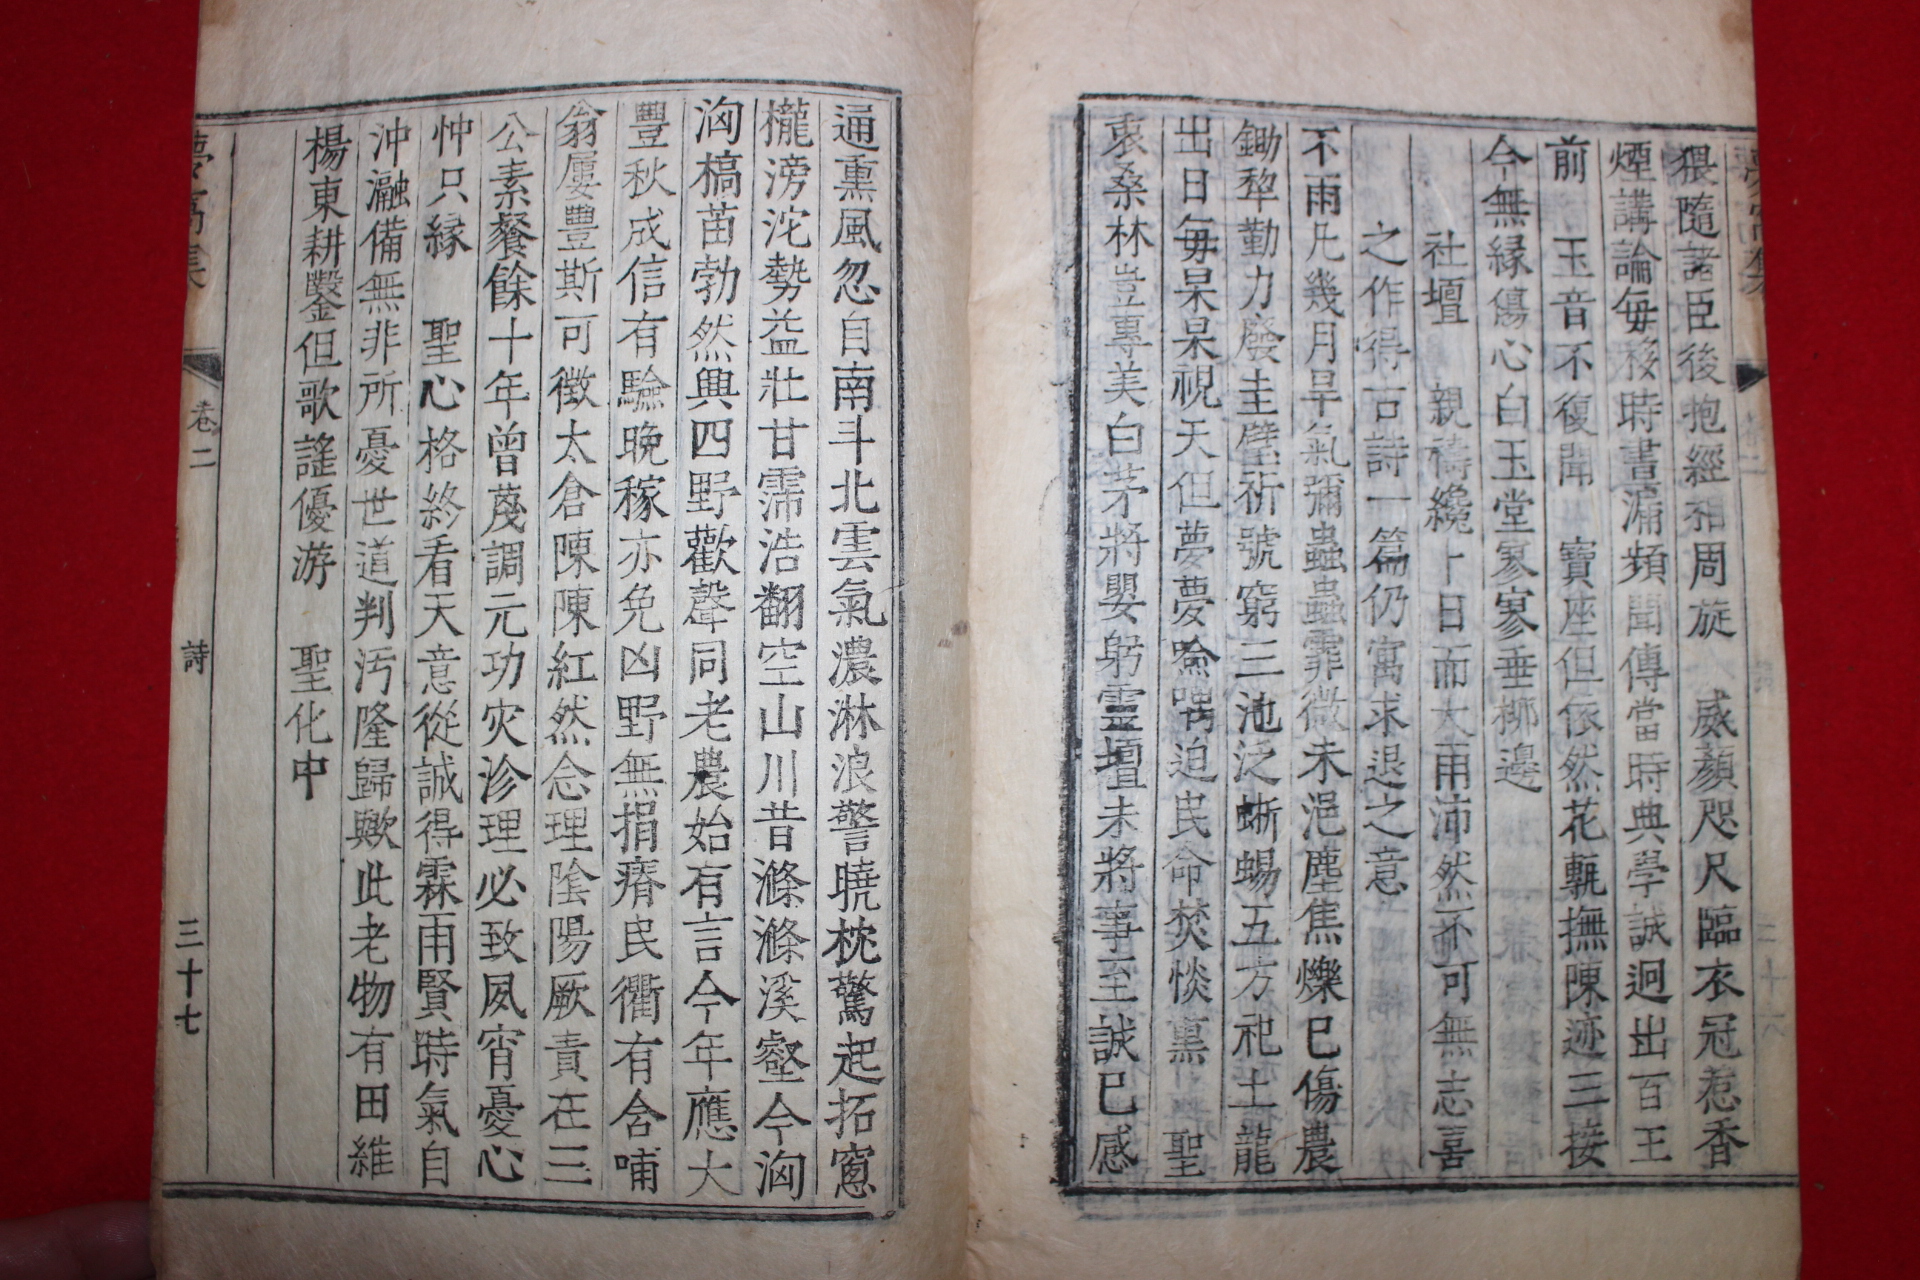 猥隨諸臣後抱經相周旋 威顏咫尺臨衣冠惹香
煙講論每移時晝漏頻聞傳當時典學誠迥出百王
前 玉音不復聞 寶座但依然花甎撫陳迹三接
今無緣傷心白玉堂寥寥垂柳邊
社壇 親禱纔卜日而大雨沛然不可無志喜
之作得古詩一篇仍寓求退之意
不雨凡幾月旱氣彌蟲蟲霏微未浥塵焦爍已傷農
鋤犂勤力廢圭璧祈號窮三池泛蜥蜴五方祀土龍
出日每杲杲視天但夢夢喩喁迫民命焚惔熏 聖
衷桑林豈專美白茅將嬰躬靈壇未將事至誠已感
通薰風忽自南斗北雲氣濃淋浪警曉枕驚起拓窓
櫳滂沱勢益壯甘霈浩翻空山川昔滌滌溪壑今洶
洶槁苗勃然興四野歡聲同老農始有言今年應大
豐秋成信有驗晚稼亦免凶野無捐瘠民衢有含哺
翁屢豐斯可徵太倉陳陳紅然念理陰陽厥責在三
公素餐餘十年曾蔑調元功灾沴理必致夙宵憂心
忡只緣 聖心格終看天意從誠得霖雨賢時氣自
沖瀜備無非所憂世道判汚隆歸歟此老物有田維
楊東耕鑿但歌謠優游 聖化中
卷二
詩
三十七